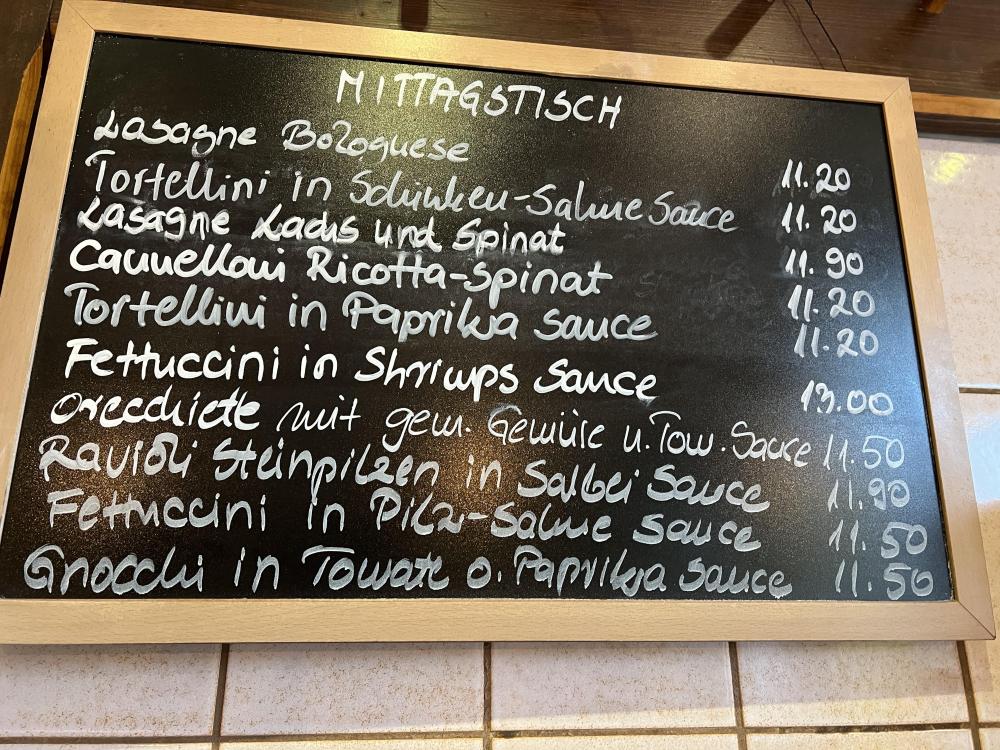 MITTAGSTISCH
Lasagne Bolognese 11.20
Tortellini in Schinken-Sahne Sauce 11.20
Lasagne Lachs und Spinat 11.90
Cannelloni Ricotta-Spinat 11.20
Tortellini in Paprika Sauce 11.20
Fettuccini in Shrimps Sauce 13.00
Orecchiette mit gem. Gemüse u. Tom. Sauce 11.50
Ravioli Steinpilzen in Salbei Sauce 11.90
Fettuccini in Pilz-Sahne Sauce 11.50
Gnocchi in Tomate o. Paprika Sauce 11.50